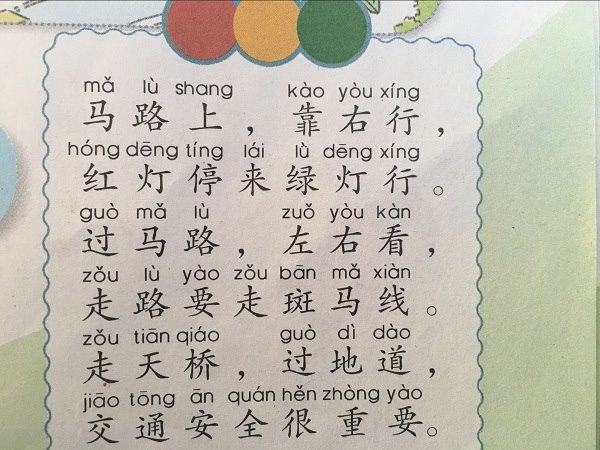 mǎ lù shang kào yòu xíng
马路上，靠右行，
hóng dēng tíng lái lù dēng xíng
红灯停来绿灯行。
guò mǎ lù zuǒ yòu kàn
过马路，左右看，
zǒu lù yào zǒu bān mǎ xiàn
走路要走斑马线。
zǒu tiān qiáo guò dì dào
走天桥，过地道，
jiāo tōng ān quán hěn zhòng yào
交通安全很重要。